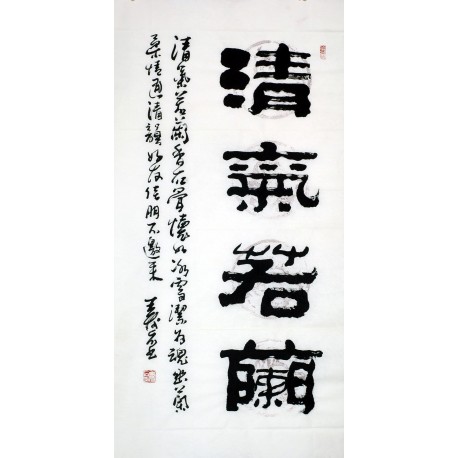 清氣若蘭
清氣若蘭香在骨懷如冰雪潔為魂幽蘭
柔情通清韻好友佳朋不邀來